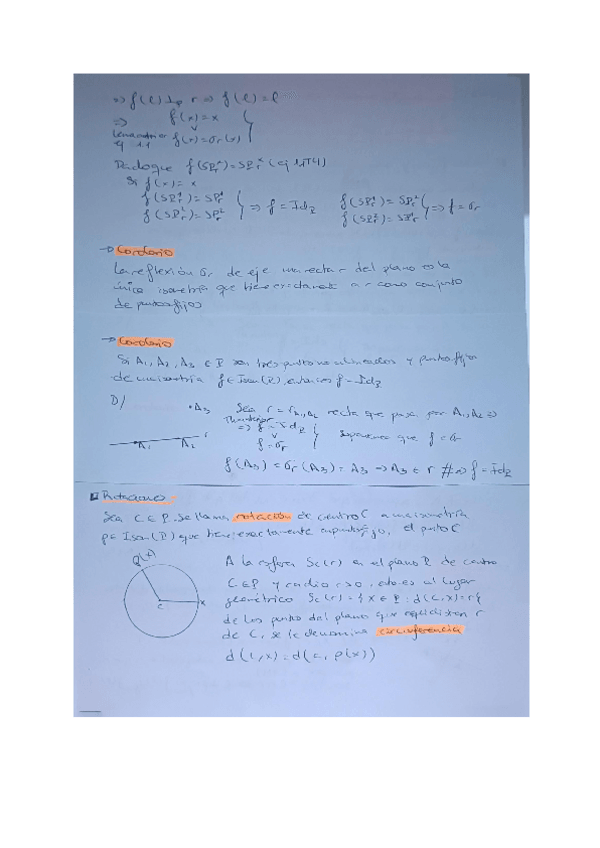 => f(l) ⊥ r => f(l) = l
=> f(x) = x
v
f(x) = σr(x) }
Dado que f(SPr¹) = SPr¹ (ej 1.T4)
Si f(x) = x
f(SPr¹) = SPr¹ f(SPr¹) = SPr²
f(SPr²) = SPr² } => f = IdP f(SPr²) = SPr¹ } => f = σr
→ Corolario
La reflexión σr de eje una recta r del plano es la
única isometría que tiene exactamente a r como conjunto
de puntos fijos
→ Corolario
Si A1, A2, A3 ∈ P son tres puntos no alineados y puntos fijos
de una isometría f ∈ Isom(P), entonces f = IdP
D/
•A3 Sea r = rA1,A2 recta que pasa por A1, A2 =>
=> f = IdP
v
f = σr } Suponemos que f = σr
A1 A2 r
f(A3) = σr(A3) = A3 => A3 ∈ r # => f = IdP
Rotaciones
Sea C ∈ P. Se llama rotación de centro C a una isometría
ρ ∈ Isom(P) que tiene exactamente un punto fijo, el punto C
ρ(x)
C
x
A la esfera Sc(r) en el plano P de centro
C ∈ P y radio r > 0, esto es al lugar
geométrico Sc(r) = {x ∈ P : d(C,x) = r}
de los puntos del plano que equidistan r
de C, se le denomina circunferencia
d(C,x) = d(C, ρ(x))